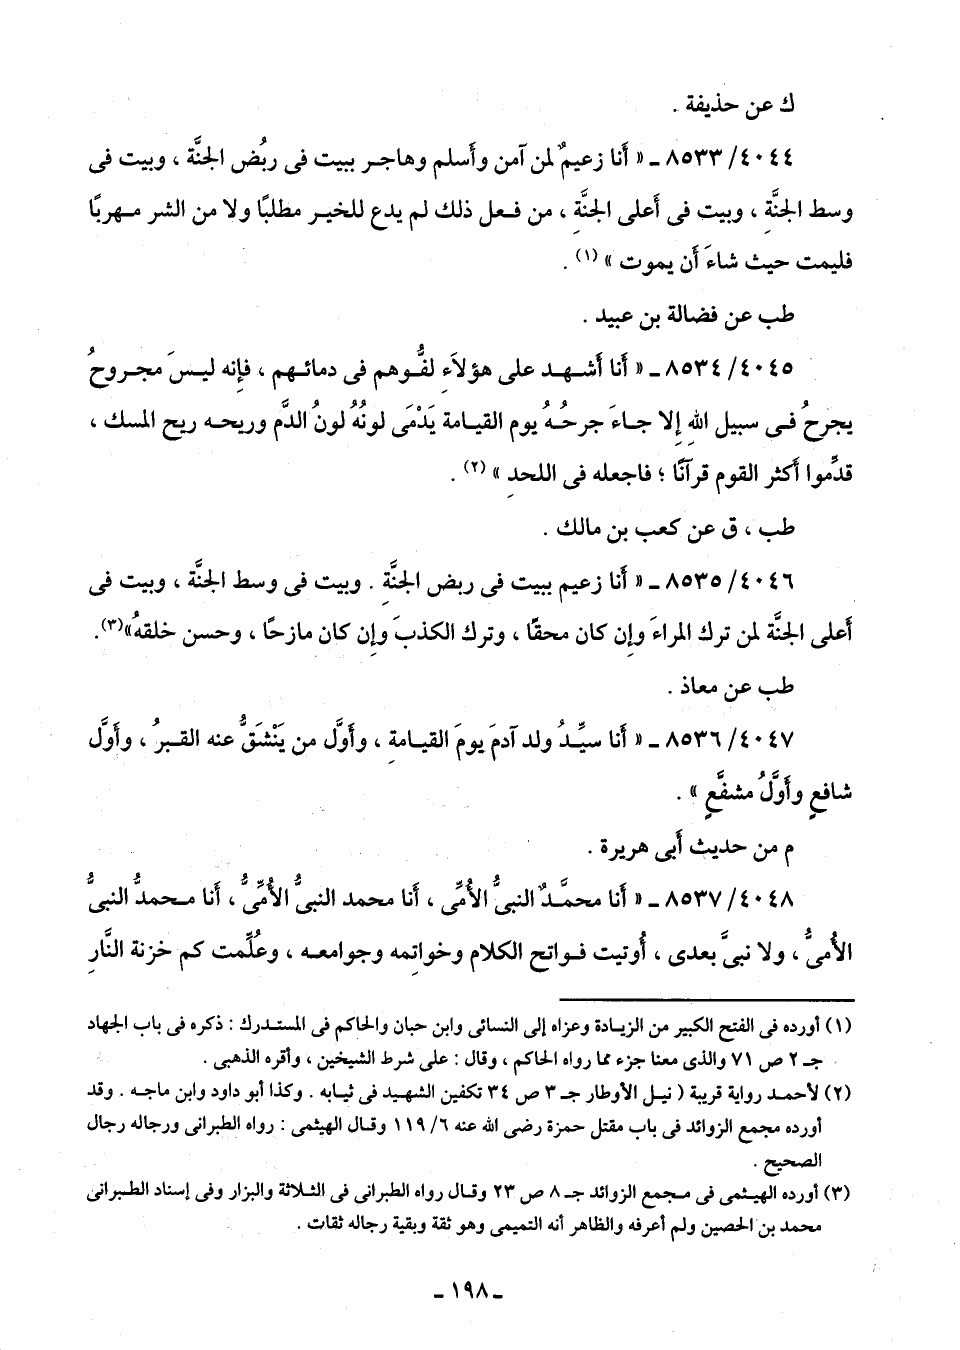 ك عن حذيفة .
٨٥٣٣/٤٠٤٤ ـ « أنا زعيمٌ لمن آمن وأسلم وهاجر ببيت فى ربُض الجنَّة ، وبيت فى
وسط الجنَّةِ ، وبيت فى أعلى الجنَّةِ ، من فعل ذلك لم يدع للخير مطلبًا ولا من الشر مهربًا
فليمت حيث شاءَ أن يموت » (١) .
طب عن فضالة بن عبيد .
٨٥٣٤/٤٠٤٥ ـ « أنا أشهد على هؤلاَءِ لفُّوهم فى دمائهم ، فإِنه ليسَ مجروحُ
يجرحُ فى سبيل اللهِ إِلا جاءَ جرحُهُ يوم القيامة يَدْمَى لونُهُ لونُ الدَّم وريحه ريح المسك ،
قدِّموا أكثر القوم قرآنًا ؛ فاجعله فى اللحدِ » (٢) .
طب ، ق عن كعب بن مالك .
٨٥٣٥/٤٠٤٦ ـ « أنا زعيم ببيت فى ربض الجنَّةِ . وبيت فى وسط الجنَّة ، وبيت فى
أعلى الجنَّة لمن ترك المراءَ وإِن كان محقًا ، وترك الكذبَ وإِن كان مازحًا ، وحسن خلقهُ»(٣).
طب عن معاذ .
٨٥٣٦/٤٠٤٧ ـ « أنا سيِّدُ ولد آدمَ يومَ القيامةِ ، وأوَّل من يَنْشَقُّ عنه القبرُ ، وأوَّل
شافعٍ وأوَّلُ مشفَّعٍ » .
م من حديث أبى هريرة .
٨٥٣٧/٤٠٤٨ ـ « أنا محمَّدٌ النبىُّ الأُمِّى ، أنا محمد النبىُّ الأُمِّىُّ ، أنا محمدُّ النبىُّ
الأُمىُّ ، ولا نبىَّ بعدى ، أُوتيت فواتح الكلام وخواتمه وجوامعه ، وعُلِّمت كم خزنة النَّارِ
(١) أورده فى الفتح الكبير من الزيادة وعزاه إلى النسائى وابن حبان والحاكم فى المستدرك : ذكره فى باب الجهاد
جـ ٢ ص ٧١ والذى معنا جزء مما رواه الحاكم ، وقال : على شرط الشيخين ، وأقره الذهبى .
(٢) لأحمد رواية قريبة ( نيل الأوطار جـ ٣ ص ٣٤ تكفين الشهيد فى ثيابه . وكذا أبو داود وابن ماجه . وقد
أورده مجمع الزوائد فى باب مقتل حمزة رضى الله عنه ٦/ ١١٩ وقال الهيثمى : رواه الطبرانى ورجاله رجال
الصحيح .
(٣) أورده الهيثمى فى مجمع الزوائد جـ ٨ ص ٢٣ وقال رواه الطبرانى فى الثلاثة والبزار وفى إسناد الطبرانى
محمد بن الحصين ولم أعرفه والظاهر أنه التميمى وهو ثقة وبقية رجاله ثقات .
ـ ١٩٨ ـ